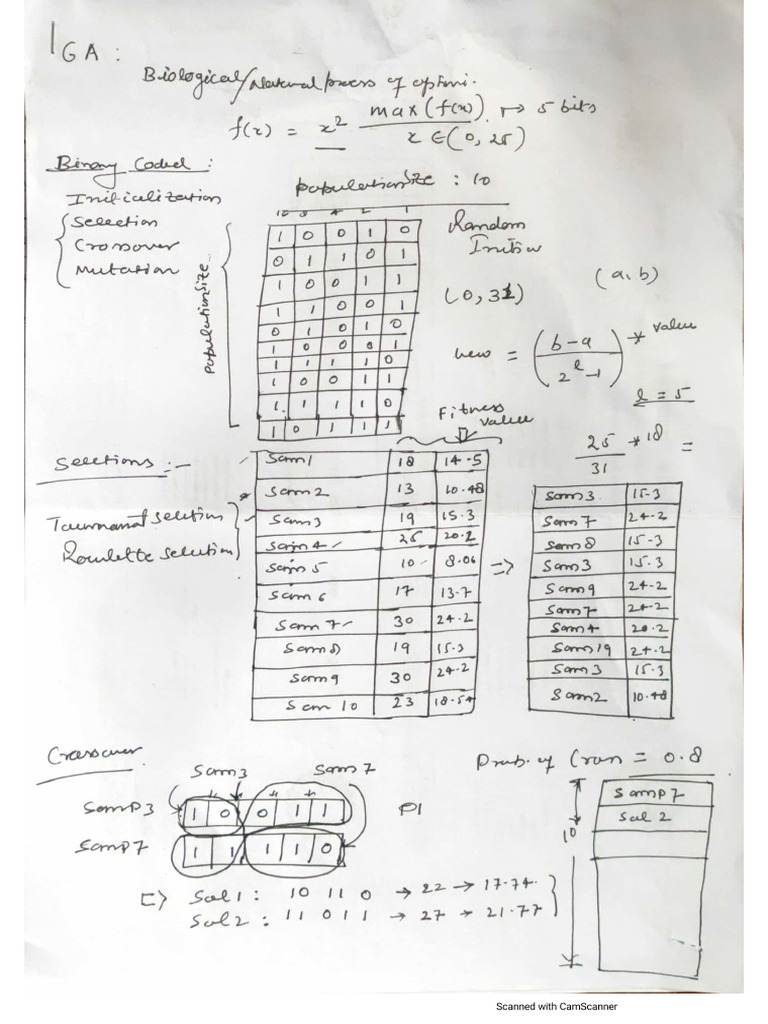 1 GA :
Biological/Natural process of optimi.
f(x) = x² max(f(x)). → 5 bits
x ∈ (0, 25)
Binary Coded :
Population Size : 10
Initialization
Selection
Crossover
Mutation
Population Size
16 8 4 2 1
1 0 0 1 0
0 1 1 0 1
1 0 0 1 1
1 1 0 0 1
0 1 0 1 0
1 0 0 0 1
1 1 1 1 0
1 0 0 1 1
1 1 1 1 0
1 0 1 1 1
Random
(0, 31)
(a, b)
new = (b-a / 2^l -1) * value
l = 5
25/31 * 18 =
Fitness
value
Selections :-
Tournament Selection
Roulette Selection
Sam 1 18 14.5
Sam 2 13 10.48
Sam 3 19 15.3
Sam 4 25 20.2
Sam 5 10 8.06
Sam 6 17 13.7
Sam 7 30 24.2
Sam 8 19 15.3
Sam 9 30 24.2
Sam 10 23 18.54
⇒
Sam 3 15.3
Sam 7 24.2
Sam 8 15.3
Sam 3 15.3
Sam 9 24.2
Sam 7 24.2
Sam 4 20.2
Sam 19 24.2
Sam 3 15.3
Sam 2 10.48
Crossover
Prob. of Cross = 0.8
Sam 3 Sam 7
Samp 3 1 0 0 1 1 P1
Samp 7 1 1 1 1 0
⇒ Sol 1 : 10 11 0 → 22 → 17.74
Sol 2 : 11 0 1 1 → 27 → 21.77
Samp 7
Sol 2
10
Scanned with CamScanner